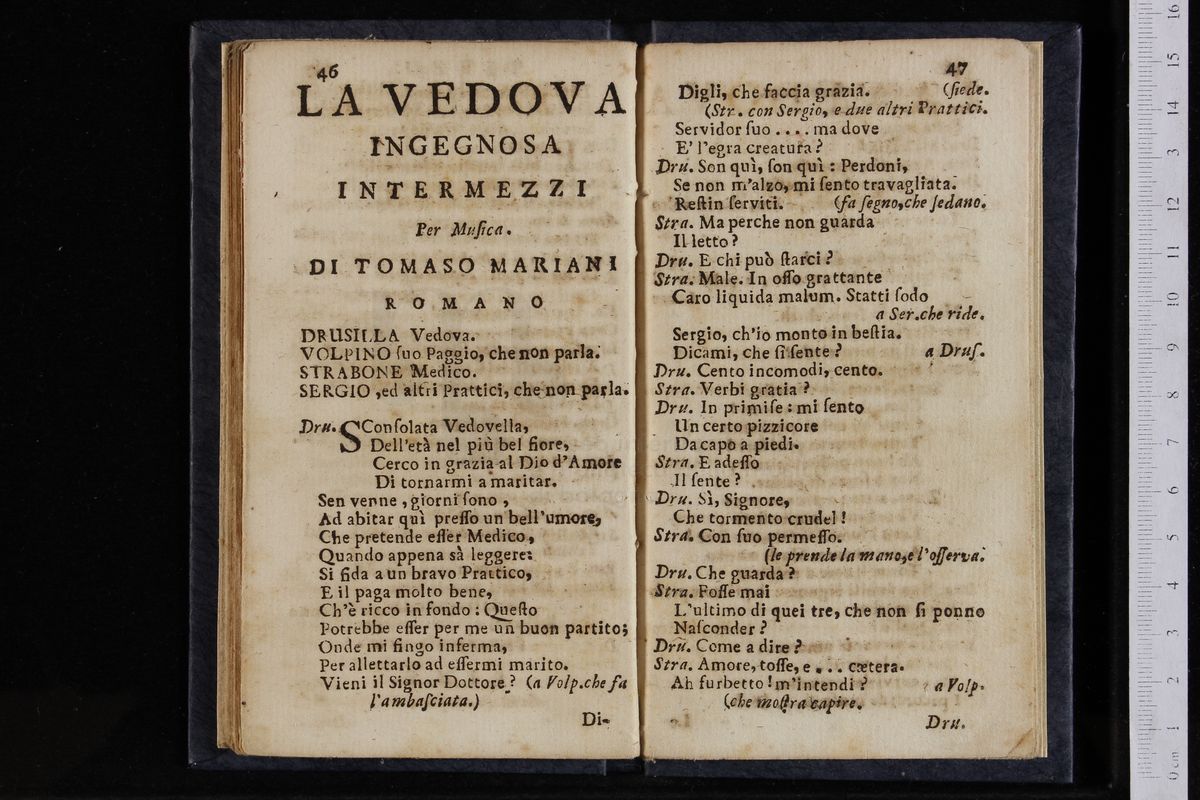 46
LA VEDOVA
INGEGNOSA
INTERMEZZI
Per Muſica.
DI TOMASO MARIANI
ROMANO
DRUSILLA Vedova.
VOLPINO ſuo Paggio, che non parla.
STRABONE Medico.
SERGIO ,ed altri Prattici, che non parla.
Dru. SConſolata Vedovella,
Dell'età nel più bel fiore,
Cerco in grazia al Dio d'Amore
Di tornarmi a maritar.
Sen venne , giorni ſono ,
Ad abitar quì preſſo un bell'umore,
Che pretende eſſer Medico,
Quando appena sà leggere:
Si fida a un bravo Prattico,
E il paga molto bene,
Ch'è ricco in fondo : Queſto
Potrebbe eſſer per me un buon partito;
Onde mi fingo inferma,
Per allettarlo ad eſſermi marito.
Vieni il Signor Dottore ? (a Volp.che fa
l'ambaſciata.)
Di-
47
Digli, che faccia grazia. (ſiede.
(Str. con Sergio, e due altri Prattici.
Servidor ſuo .... ma dove
E' l'egra creatura ?
Dru. Son quì, ſon quì : Perdoni,
Se non m'alzo, mi ſento travagliata.
Reſtin ſerviti. (fa ſegno,che ſedano.
Stra. Ma perche non guarda
Il letto ?
Dru. E chi può ſtarci ?
Stra. Male. In oſſo grattante
Caro liquida malum. Statti ſodo
a Ser.che ride.
Sergio, ch'io monto in beſtia.
Dicami, che ſi ſente ? a Druſ.
Dru. Cento incomodi, cento.
Stra. Verbi gratia ?
Dru. In primiſe : mi ſento
Un certo pizzicore
Da capo a piedi.
Stra. E adeſſo
Il ſente ?
Dru. Sì, Signore,
Che tormento crudel !
Stra. Con ſuo permeſſo.
(le prende la mano,e l'oſſerva.
Dru. Che guarda ?
Stra. Foſſe mai
L'ultimo di quei tre, che non ſi ponno
Naſconder ?
Dru. Come a dire ?
Stra. Amore, toſſe, e ... cætera.
Ah furbetto ! m'intendi ? a Volp.
(che moſtra capire.
Dru.
0 cm 1 2 3 4 5 6 7 8 9 10 11 12 13 14 15 16